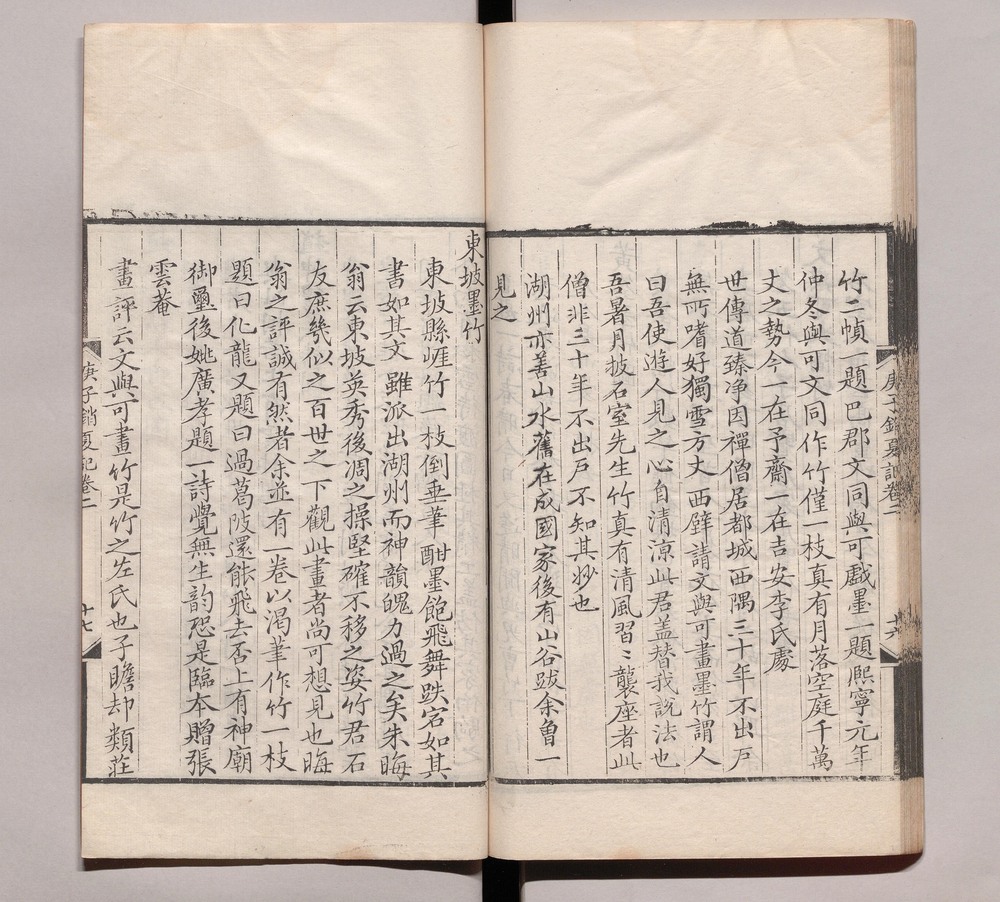 竹二幀一題巴郡文同與可戲墨一題熈寧元年
仲冬與可文同作竹僅一枝真有月落空庭千萬
丈之勢今一在予齋一在吉安李氏䖏
世傳道臻净因禪僧居都城西隅三十年不出戸
無所嗜好獨雪方丈西壁請文與可畫墨竹謂人
曰吾使遊人見之心自清涼此君盖替我說法也
吾暑月披石室先生竹真有清風習〻襲座者此
僧非三十年不出戸不知其妙也
湖州亦善山水舊在成國家後有山谷跋余曾一
見之
庚子銷夏記卷二
十六
東坡墨竹
東坡縣崕竹一枝倒垂筆酣墨飽飛舞跌宕如其
書如其文雖派出湖州而神韻魄力過之矣朱晦
翁云東坡英秀後凋之操堅確不移之姿竹君石
友庶幾似之百世之下觀此畫者尚可想見也晦
翁之評誠有然者余並有一卷以渴筆作竹一枝
題曰化龍又題曰過葛陂還能飛去否上有神廟
御璽後姚廣孝題一詩覺無生韵恐是臨本贈張
雲菴
畫評云文與可畫竹是竹之左氏也子瞻却類莊
庚子銷夏記卷二
十七